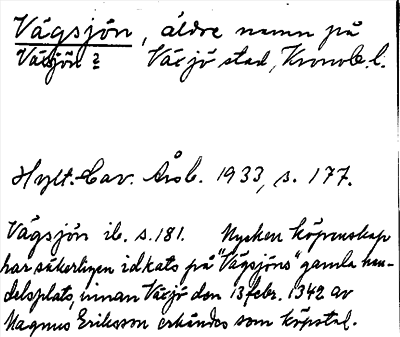 Vägsjön, äldre namn på
Växjön? Växjö stad, Kronob. l.
Hylt.-Cav. Årsb. 1933, s. 177.
Vägsjön ib. s. 181. Mycken köpenskap
har säkerligen idkats på "Vägsjöns" gamla han-
delsplats, innan Växjö den 13 febr. 1342 av
Magnus Eriksson erkändes som köpstad.